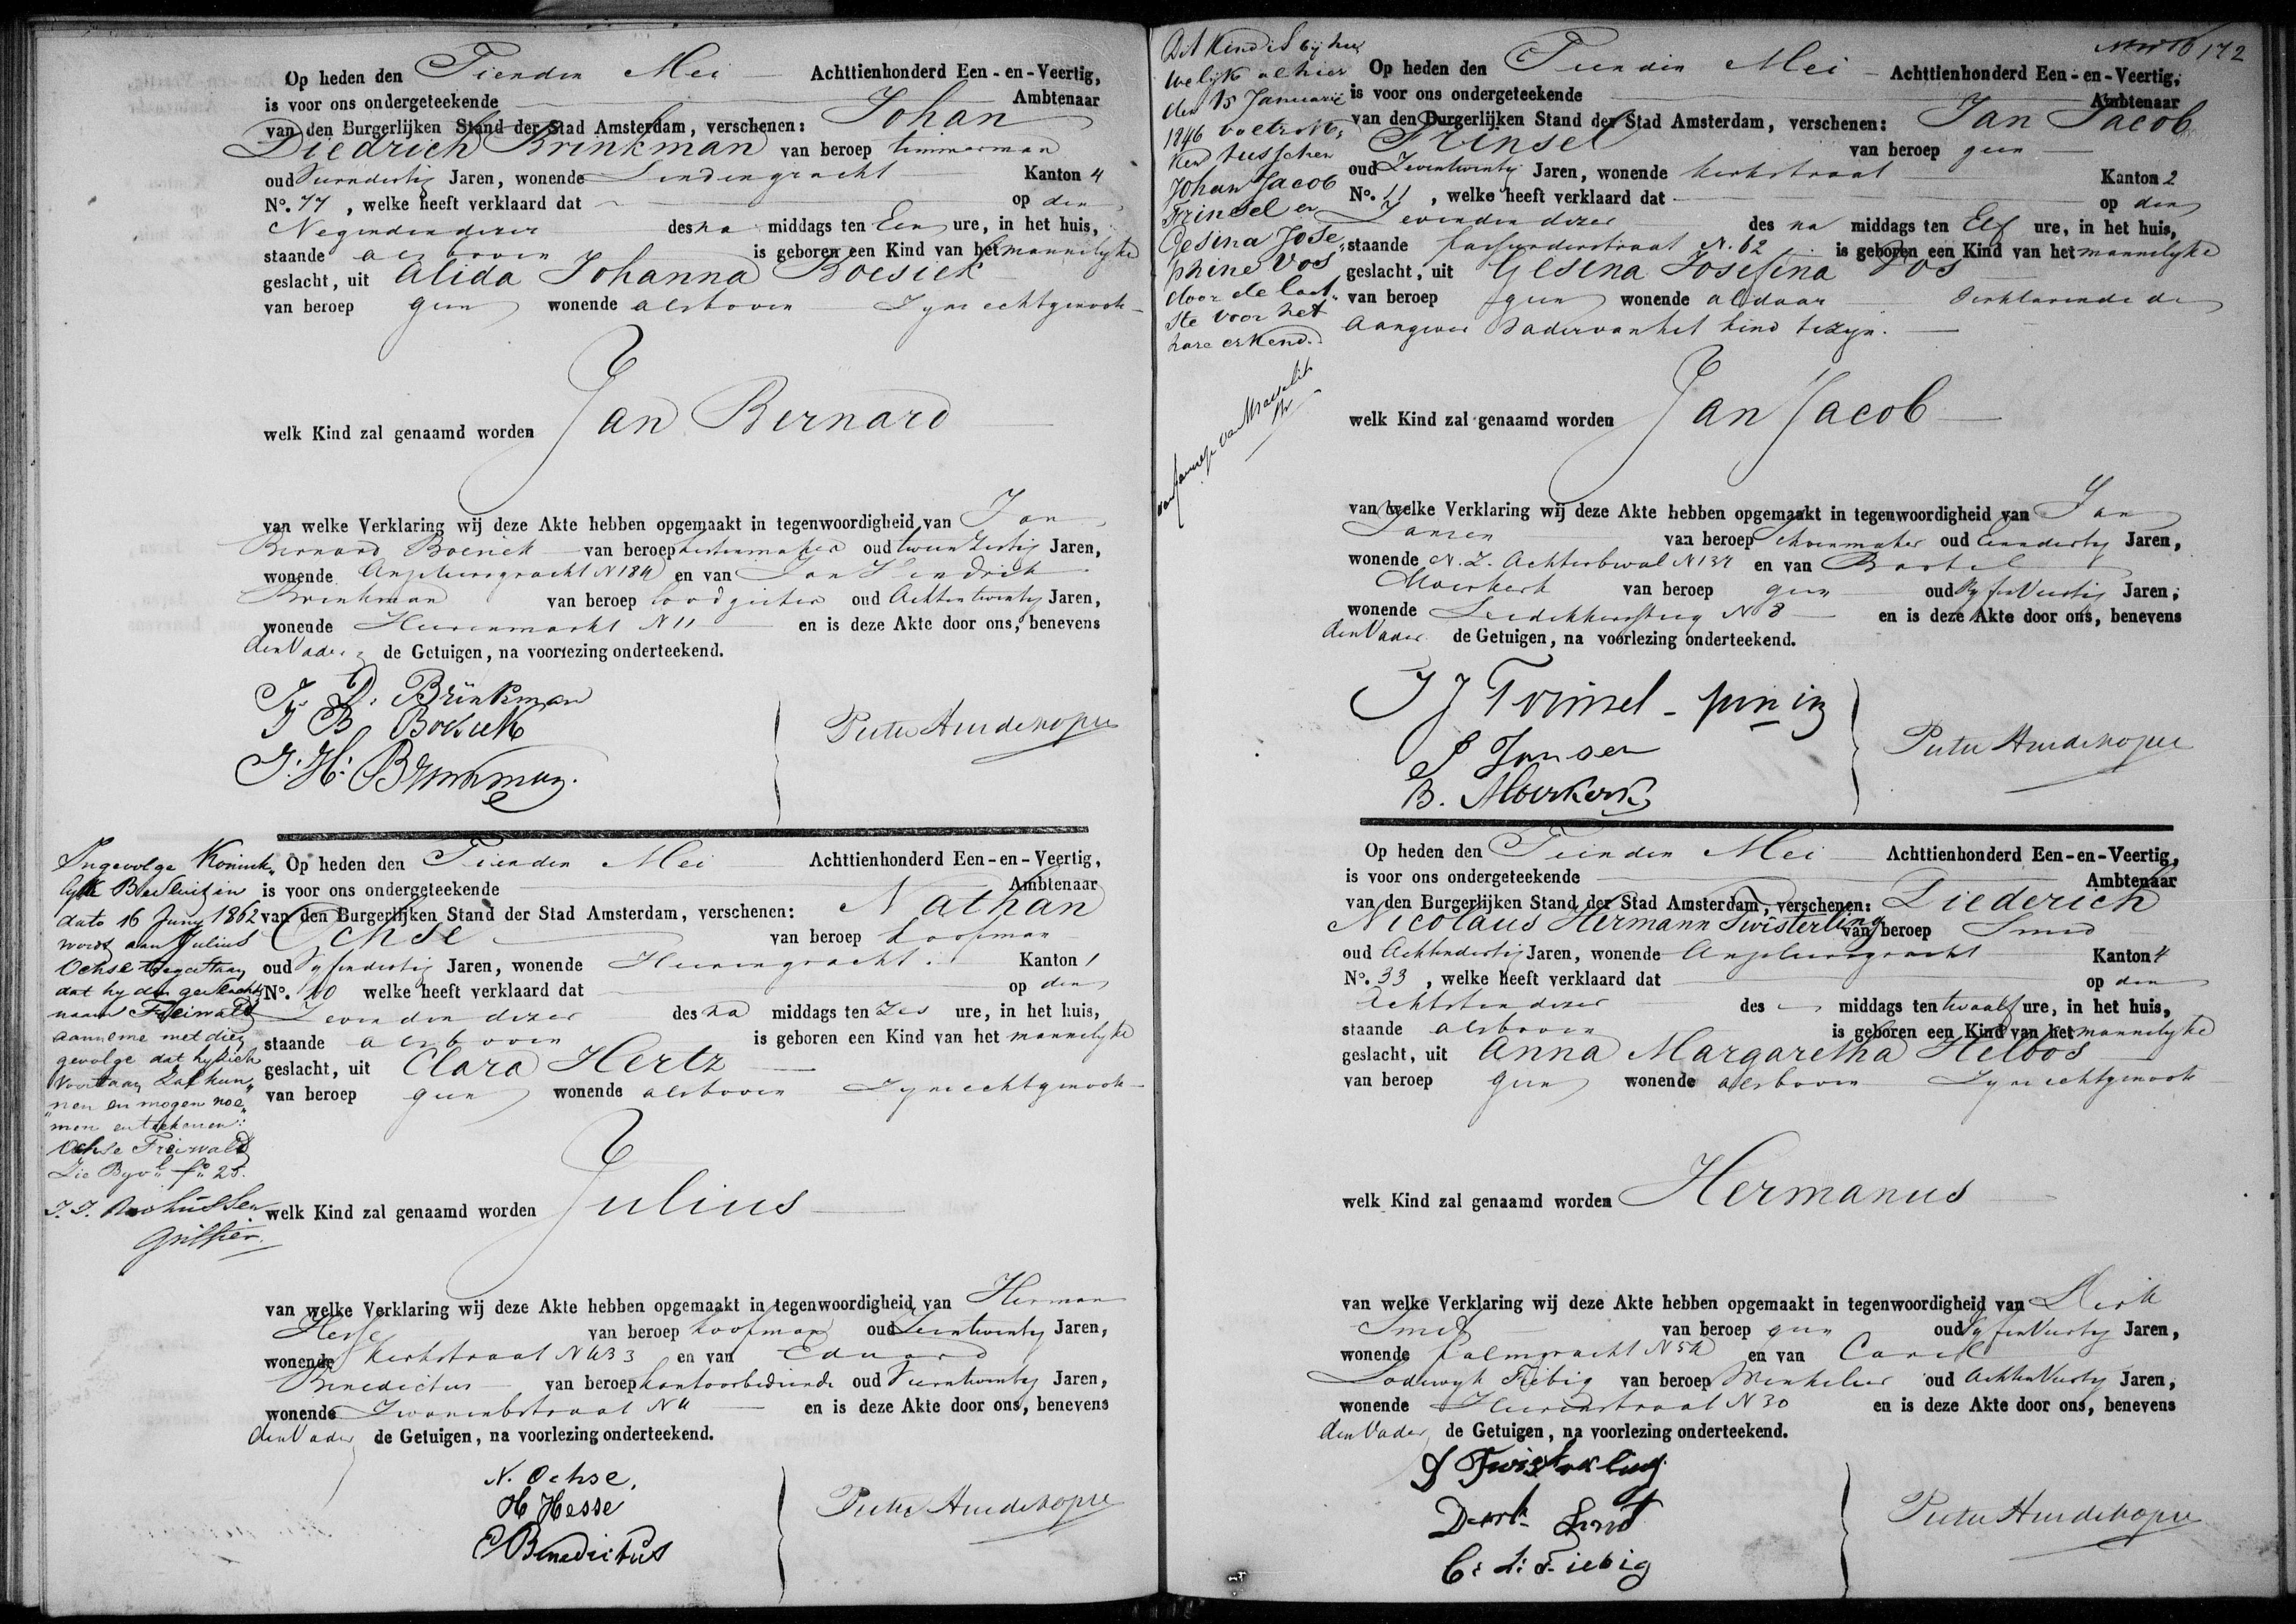 Op heden den Tienden Mei Achttienhonderd Een-en-Veertig,
is voor ons ondergeteekende Ambtenaar
van den Burgerlijken Stand der Stad Amsterdam, verschenen: Johan
Diedrich Brinkman van beroep timmerman
oud Vierendertig Jaren, wonende Lindengracht Kanton 4
No. 77, welke heeft verklaard dat op den
Negenden dezer des na middags ten Een ure, in het huis,
staande als boven is geboren een Kind van het mannelyke
geslacht, uit Alida Johanna Boesick
van beroep geen wonende alsboven Zyne echtgenoote
welk Kind zal genaamd worden Jan Bernard
van welke Verklaring wij deze Akte hebben opgemaakt in tegenwoordigheid van Jan
Bernard Boesick van beroep kistenmaker oud Jaren,
wonende Anjeliersgracht N 184 en van Jan Hendrik
Brinkman van beroep loodgieter oud Achtentwintig Jaren,
wonende Heerenmarkt N 11 en is deze Akte door ons, benevens
den Vader de Getuigen, na voorlezing onderteekend.
J. D. Brinkman
J B Boesick
J. H. Brinkman.
Ingevolge Konink-
lyk Besluit in
dato 16 Juny 1862
wordt aan Julius
Ochse toegestaan
dat hy den geslachts
naam Freiwald
aanneme met dien
gevolge dat hy zich
voortaan zal kun-
nen en mogen noe-
men en teekenen:
Ochse Freiwald
Zie Byvl. fo. 25.
Griffier.
Op heden den Tienden Mei Achttienhonderd Een-en-Veertig,
is voor ons ondergeteekende Ambtenaar
van den Burgerlijken Stand der Stad Amsterdam, verschenen: Nathan
Ochse van beroep koopman
oud Vyfendertig Jaren, wonende Heerengracht Kanton 1
No. 10 welke heeft verklaard dat op den
Zevenden dezer des na middags ten Zes ure, in het huis,
staande alsboven is geboren een Kind van het mannelyke
geslacht, uit Clara Hertz
van beroep geen wonende alsboven Zyne echtgenoote
welk Kind zal genaamd worden Julius
van welke Verklaring wij deze Akte hebben opgemaakt in tegenwoordigheid van Herman
Hesse van beroep koopman oud Jaren,
wonende Kerkstraat N 433 en van Eduard
Benedictus van beroep kantoorbediende oud Vierentwintig Jaren,
wonende Zwanenbstraat N 4 en is deze Akte door ons, benevens
den Vader de Getuigen, na voorlezing onderteekend.
N. Ochse,
H Hesse
E Benedictus
172
Dit kind is by hu
welyk alhier
den 15 Januarie
1846 voltrok-
ken tusschen
Johan Jacob
Frinsel en
Gesina Jose-
phine Vos
door de laat-
ste voor het
hare erkend.
Op heden den Tienden Mei Achttienhonderd Een-en-Veertig,
is voor ons ondergeteekende Ambtenaar
van den Burgerlijken Stand der Stad Amsterdam, verschenen: Jan Jacob
Frinsel van beroep geen
oud Zevenentwintig Jaren, wonende Kerkstraat Kanton 2
No. 11, welke heeft verklaard dat op den
Zevenden dezer des na middags ten Elf ure, in het huis,
staande N. 62 is geboren een Kind van het mannelyke
geslacht, uit Gesina Josefina Vos
van beroep geen wonende aldaar Verklarende de
Aangever Vader van het kind te zyn.
welk Kind zal genaamd worden Jan Jacob
van welke Verklaring wij deze Akte hebben opgemaakt in tegenwoordigheid van Jan
Jansen van beroep Schoenmaker oud Eenendertig Jaren,
wonende N.Z. Achterbwal N 137 en van Bartel
Moerkerk van beroep geen oud Vyfenveertig Jaren,
wonende N 8 en is deze Akte door ons, benevens
den Vader de Getuigen, na voorlezing onderteekend.
J J Frinsel
J Jansen
B. Moerkerk
Op heden den Tienden Mei Achttienhonderd Een-en-Veertig,
is voor ons ondergeteekende Ambtenaar
van den Burgerlijken Stand der Stad Amsterdam, verschenen: Diederich
Nicolaus Hermann Twisterling van beroep Smid
oud Achtendertig Jaren, wonende Anjeliersgracht Kanton 4
No. 33, welke heeft verklaard dat op den
Achtsten dezer des middags ten twaalf ure, in het huis,
staande alsboven is geboren een Kind van het mannelyke
geslacht, uit Anna Margaretha Helbos
van beroep geen wonende alsboven Zyne echtgenoote
welk Kind zal genaamd worden Hermanus
van welke Verklaring wij deze Akte hebben opgemaakt in tegenwoordigheid van Dirk
Smit van beroep geen oud Vyfenveertig Jaren,
wonende Palmgracht N 54 en van Carel
Lodewyk Fiebig van beroep Winkelier oud Achtenveertig Jaren,
wonende Heerenstraat N 30 en is deze Akte door ons, benevens
den Vader de Getuigen, na voorlezing onderteekend.
Twisterling
Derk Smit
C: L: Fiebig